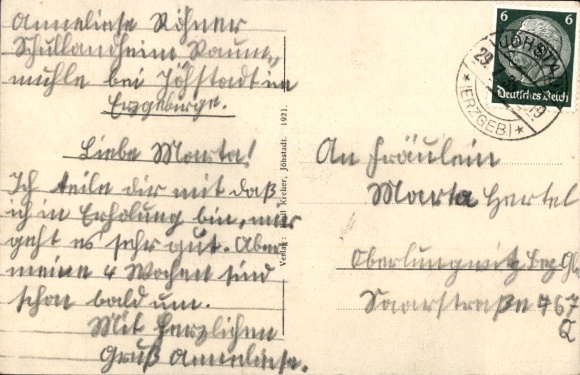 Anneliese Röhner
Schullandheim Raum„
mühle bei Jöhstadt im
Erzgebirge.
Liebe Marta!
Ich teile dir mit daß
ich in Erholung bin, mir
geht es sehr gut. Aber
meine 4 Wochen sind
schon bald um.
Mit herzlichen
Gruß Anneliese.
Kircher, Jöhstadt. 1921.
Verlag:
6 6
Deutsches Reich
JÖHSTADT
(ERZGEB)
An Fräulein
Marta Hertel
Oberlungwitz Bez. Gl
Saarstraße 467